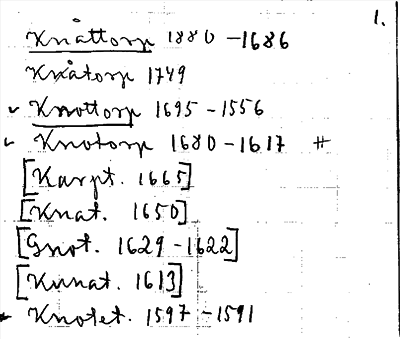 1.
Knåttorp 1880 - 1686
Knåtorp 1749
Knottorp 1695 - 1556
Knotorp 1680 - 1617 #
[Karpt. 1665]
[Knat. 1650]
[Gnot. 1629 - 1622]
[Kunat. 1613]
Knotet. 1597 - 1591